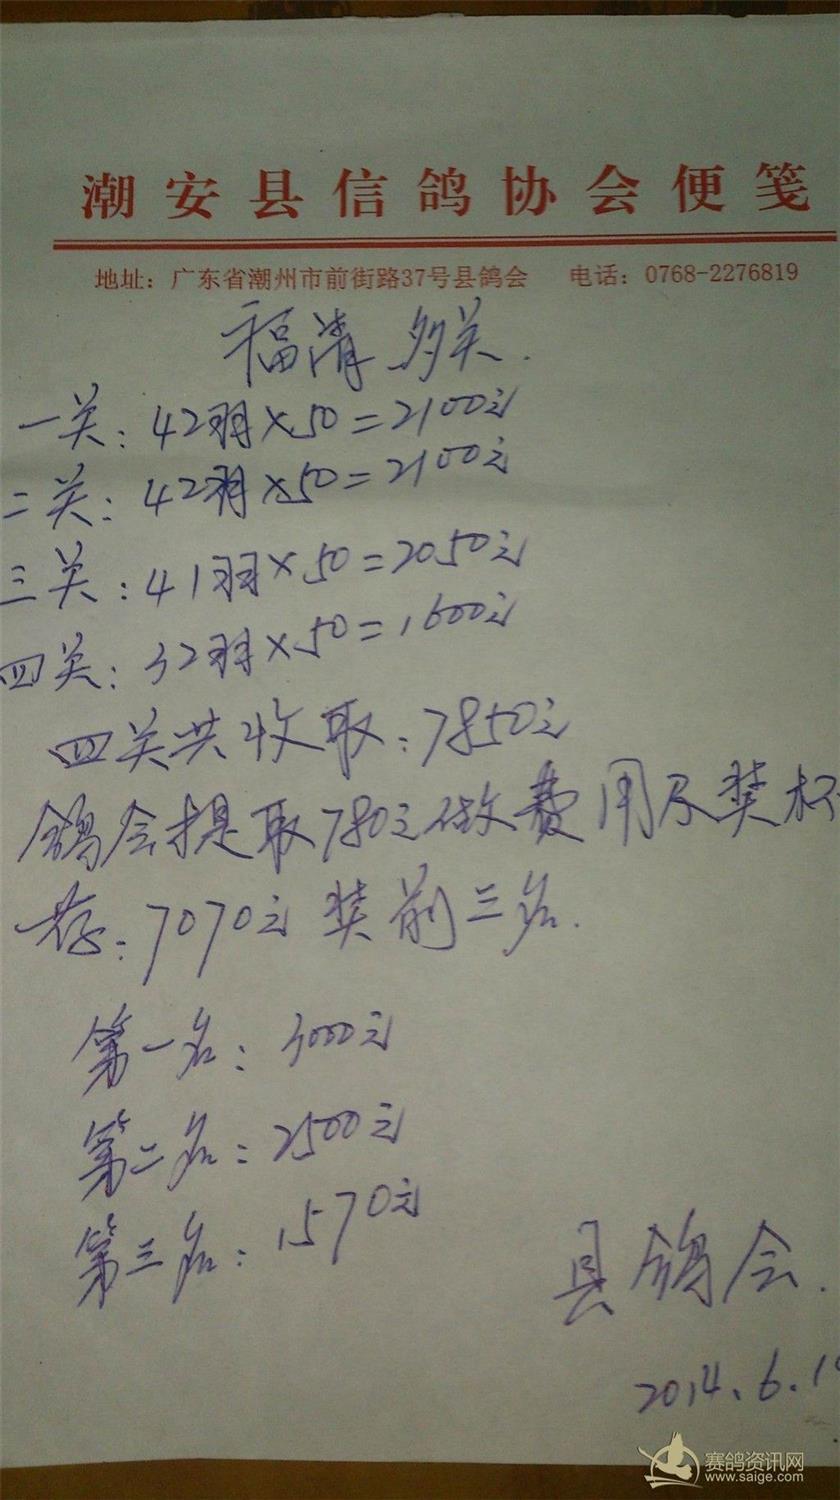 潮安县信鸽协会便笺
地址：广东省潮州市前街路37号县鸽会 电话：0768-2276819
福清多关.
一关：42羽×50=2100元
二关：42羽×50=2100元
三关：41羽×50=2050元
四关：32羽×50=1600元
四关共收取：7850元
鸽会提取780元做费用及奖杯
存：7070元奖前三名.
第一名：3000元
第二名：2500元
第三名：1570元
县鸽会.
2014.6.1
赛鸽资讯网
www.saige.com